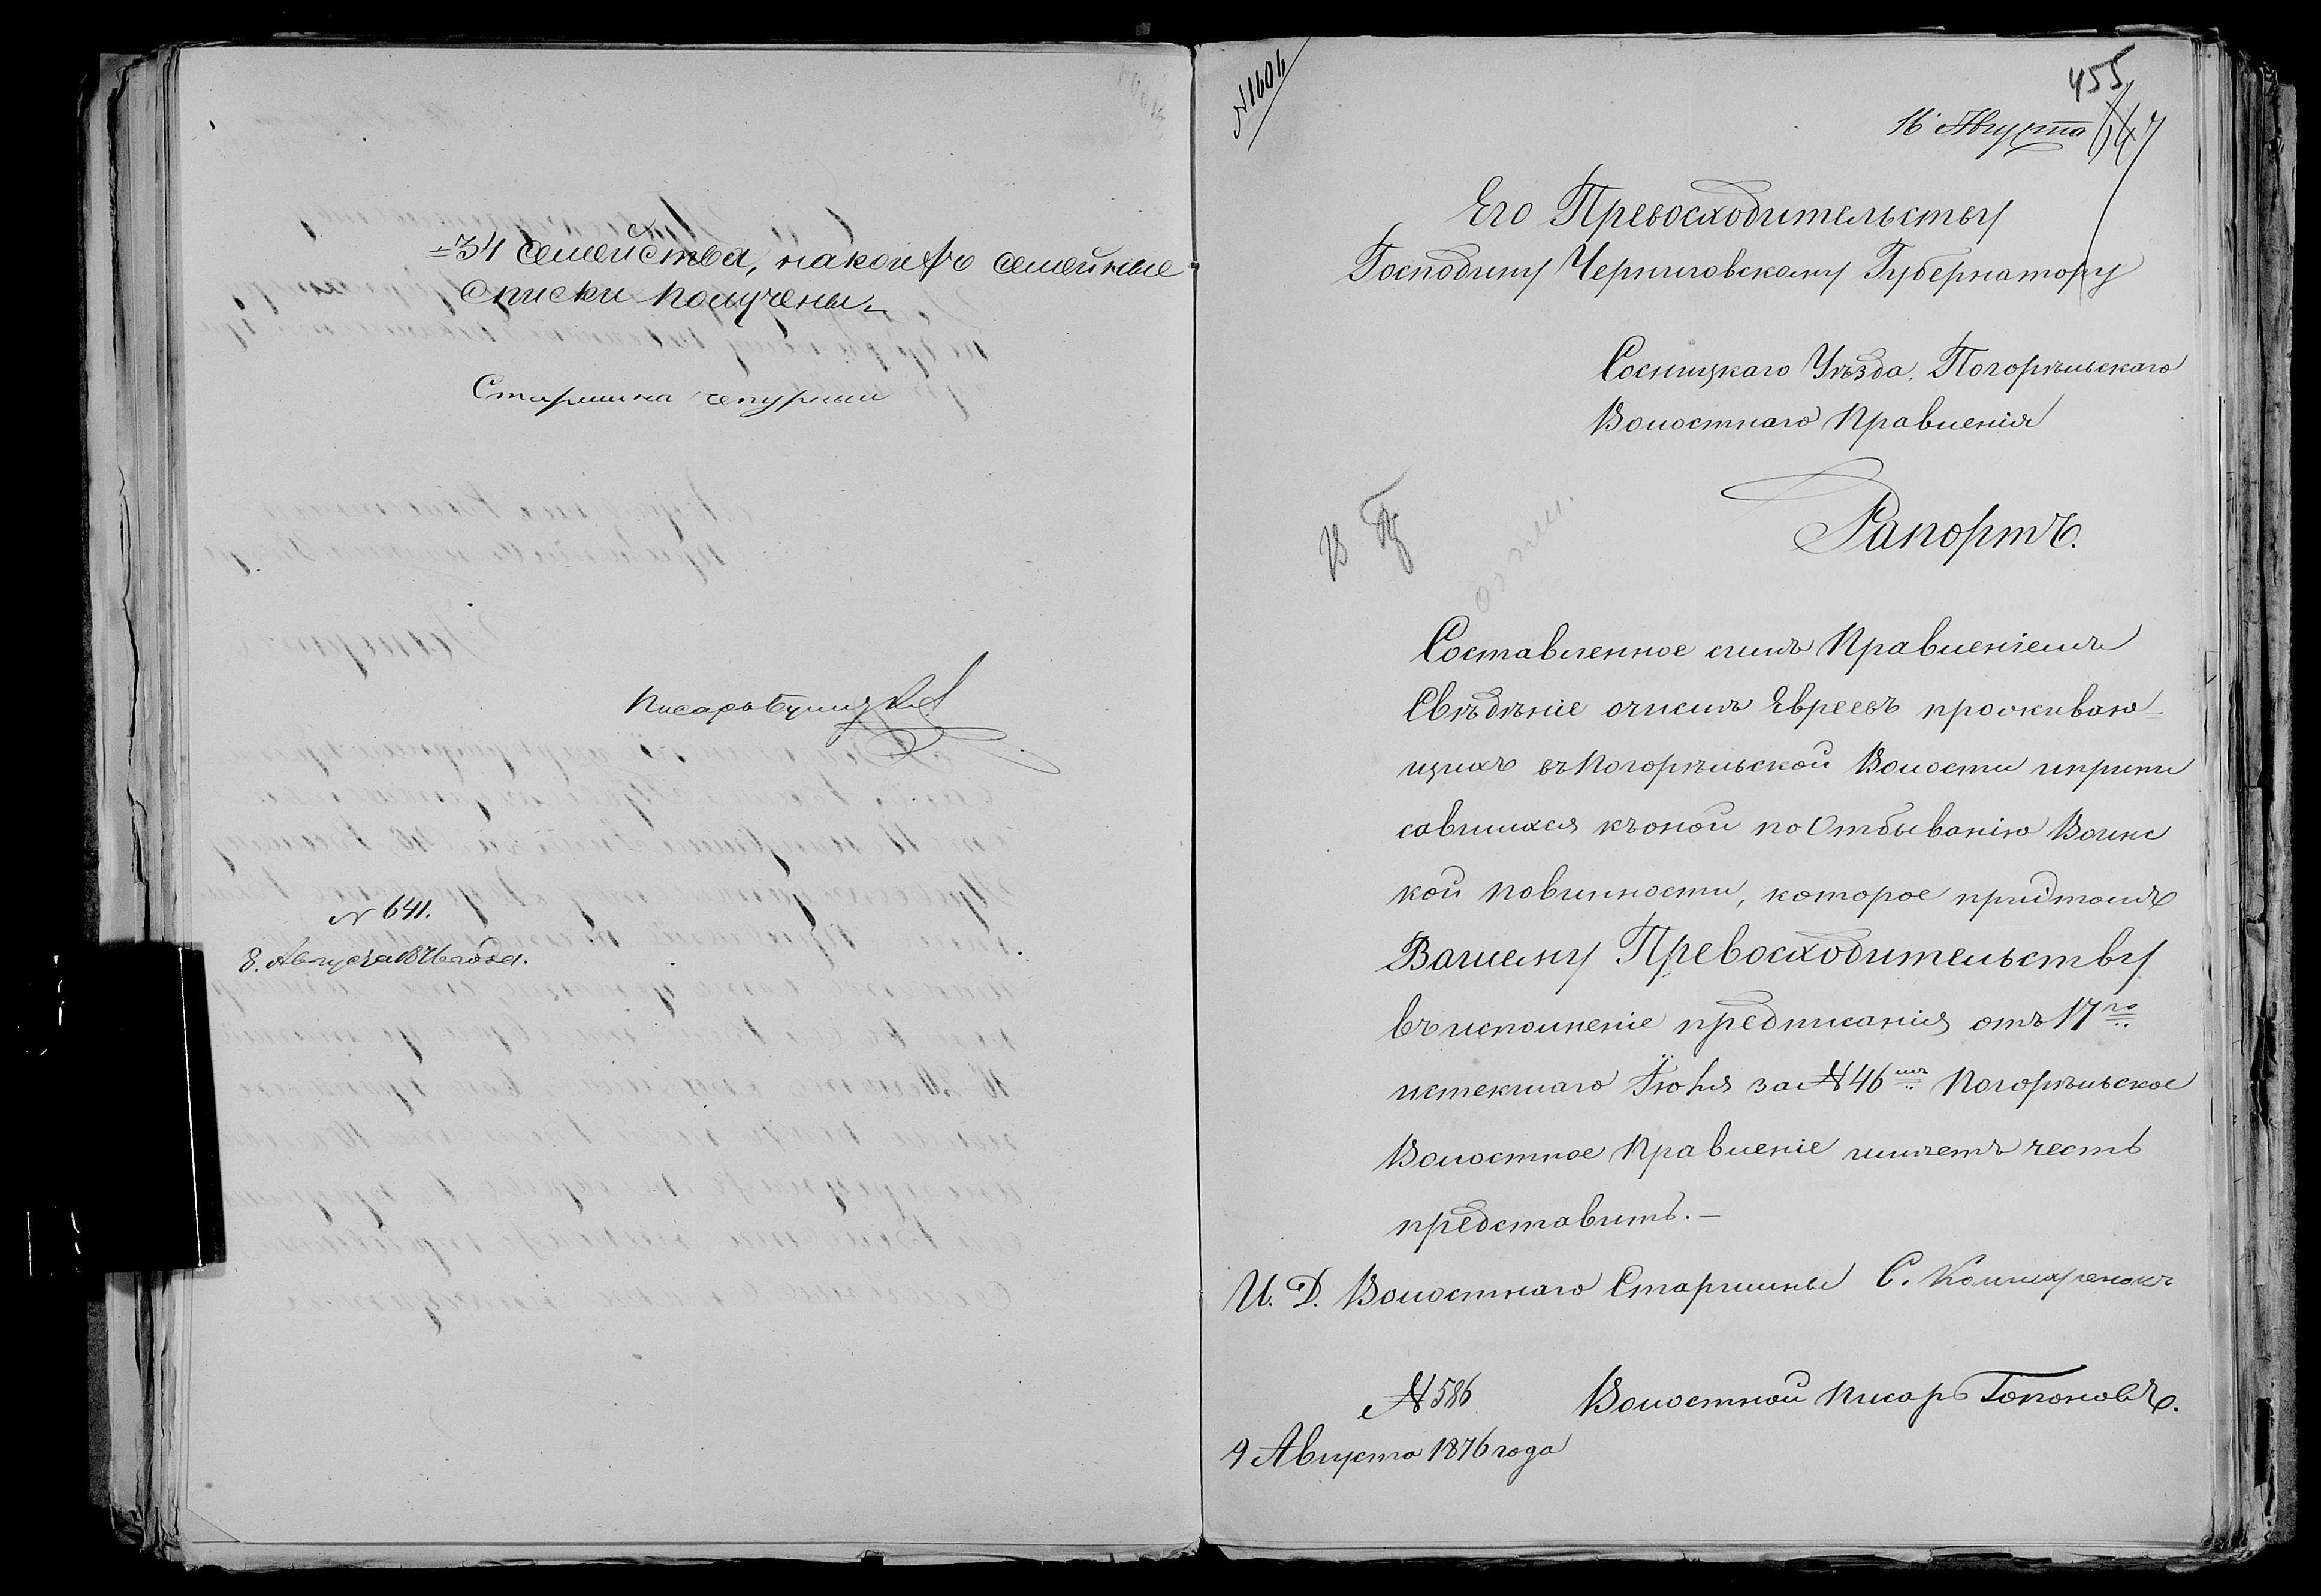 =34 семейства, на коихъ семейные
списки получены
Старшина Чепурный
Писарь
N 641.
8. Августа 1876 года.
N 1606
455
16 Августа
Его Превосходительству
Господину Черниговскому Губернатору
Сосницкаго Уѣзда, Погорѣльскаго
Волостнаго Правленія
Рапортъ.
Составленное симъ Правленіемъ
Свѣдѣніе очислѣ Евреевъ проживаю-
щихъ въ Погорѣльской Волости иприпи
савшихся къоной по Отбыванію Воинс
кой повинности, которое придтомъ
Вашему Превосходительству
въисполненіе предписанія отъ 17го
истекшаго Іюня за N 46мъ Погорѣльское
Волостное Правленіе имѣетъ честь
представить.—
И. Д. Волостнаго Старшины С.
N 586 Волостной Писарь Гопоновъ.
9 Августа 1876 года